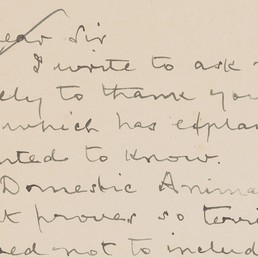 Dear Sir
I write to ask
ely to thank you
which has explai
nted to know.
Domestic Anima
k proves so terri
red not to includ